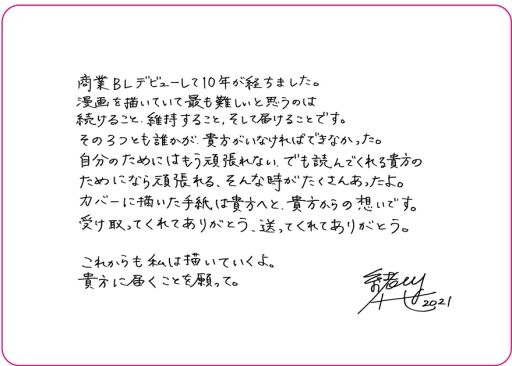 商業BLデビューして10年が経ちました。
漫画を描いていて最も難しいと思うのは
続けること、維持すること、そして届けることです。
その3つとも誰かが、貴方がいなければできなかった。
自分のためにはもう頑張れない、でも読んでくれる貴方の
ためになら頑張れる、そんな時がたくさんあったよ。
カバーに描いた手紙は貴方へと、貴方からの想いです。
受け取ってくれてありがとう、送ってくれてありがとう。
これからも私は描いていくよ。
貴方に届くことを願って。
2021